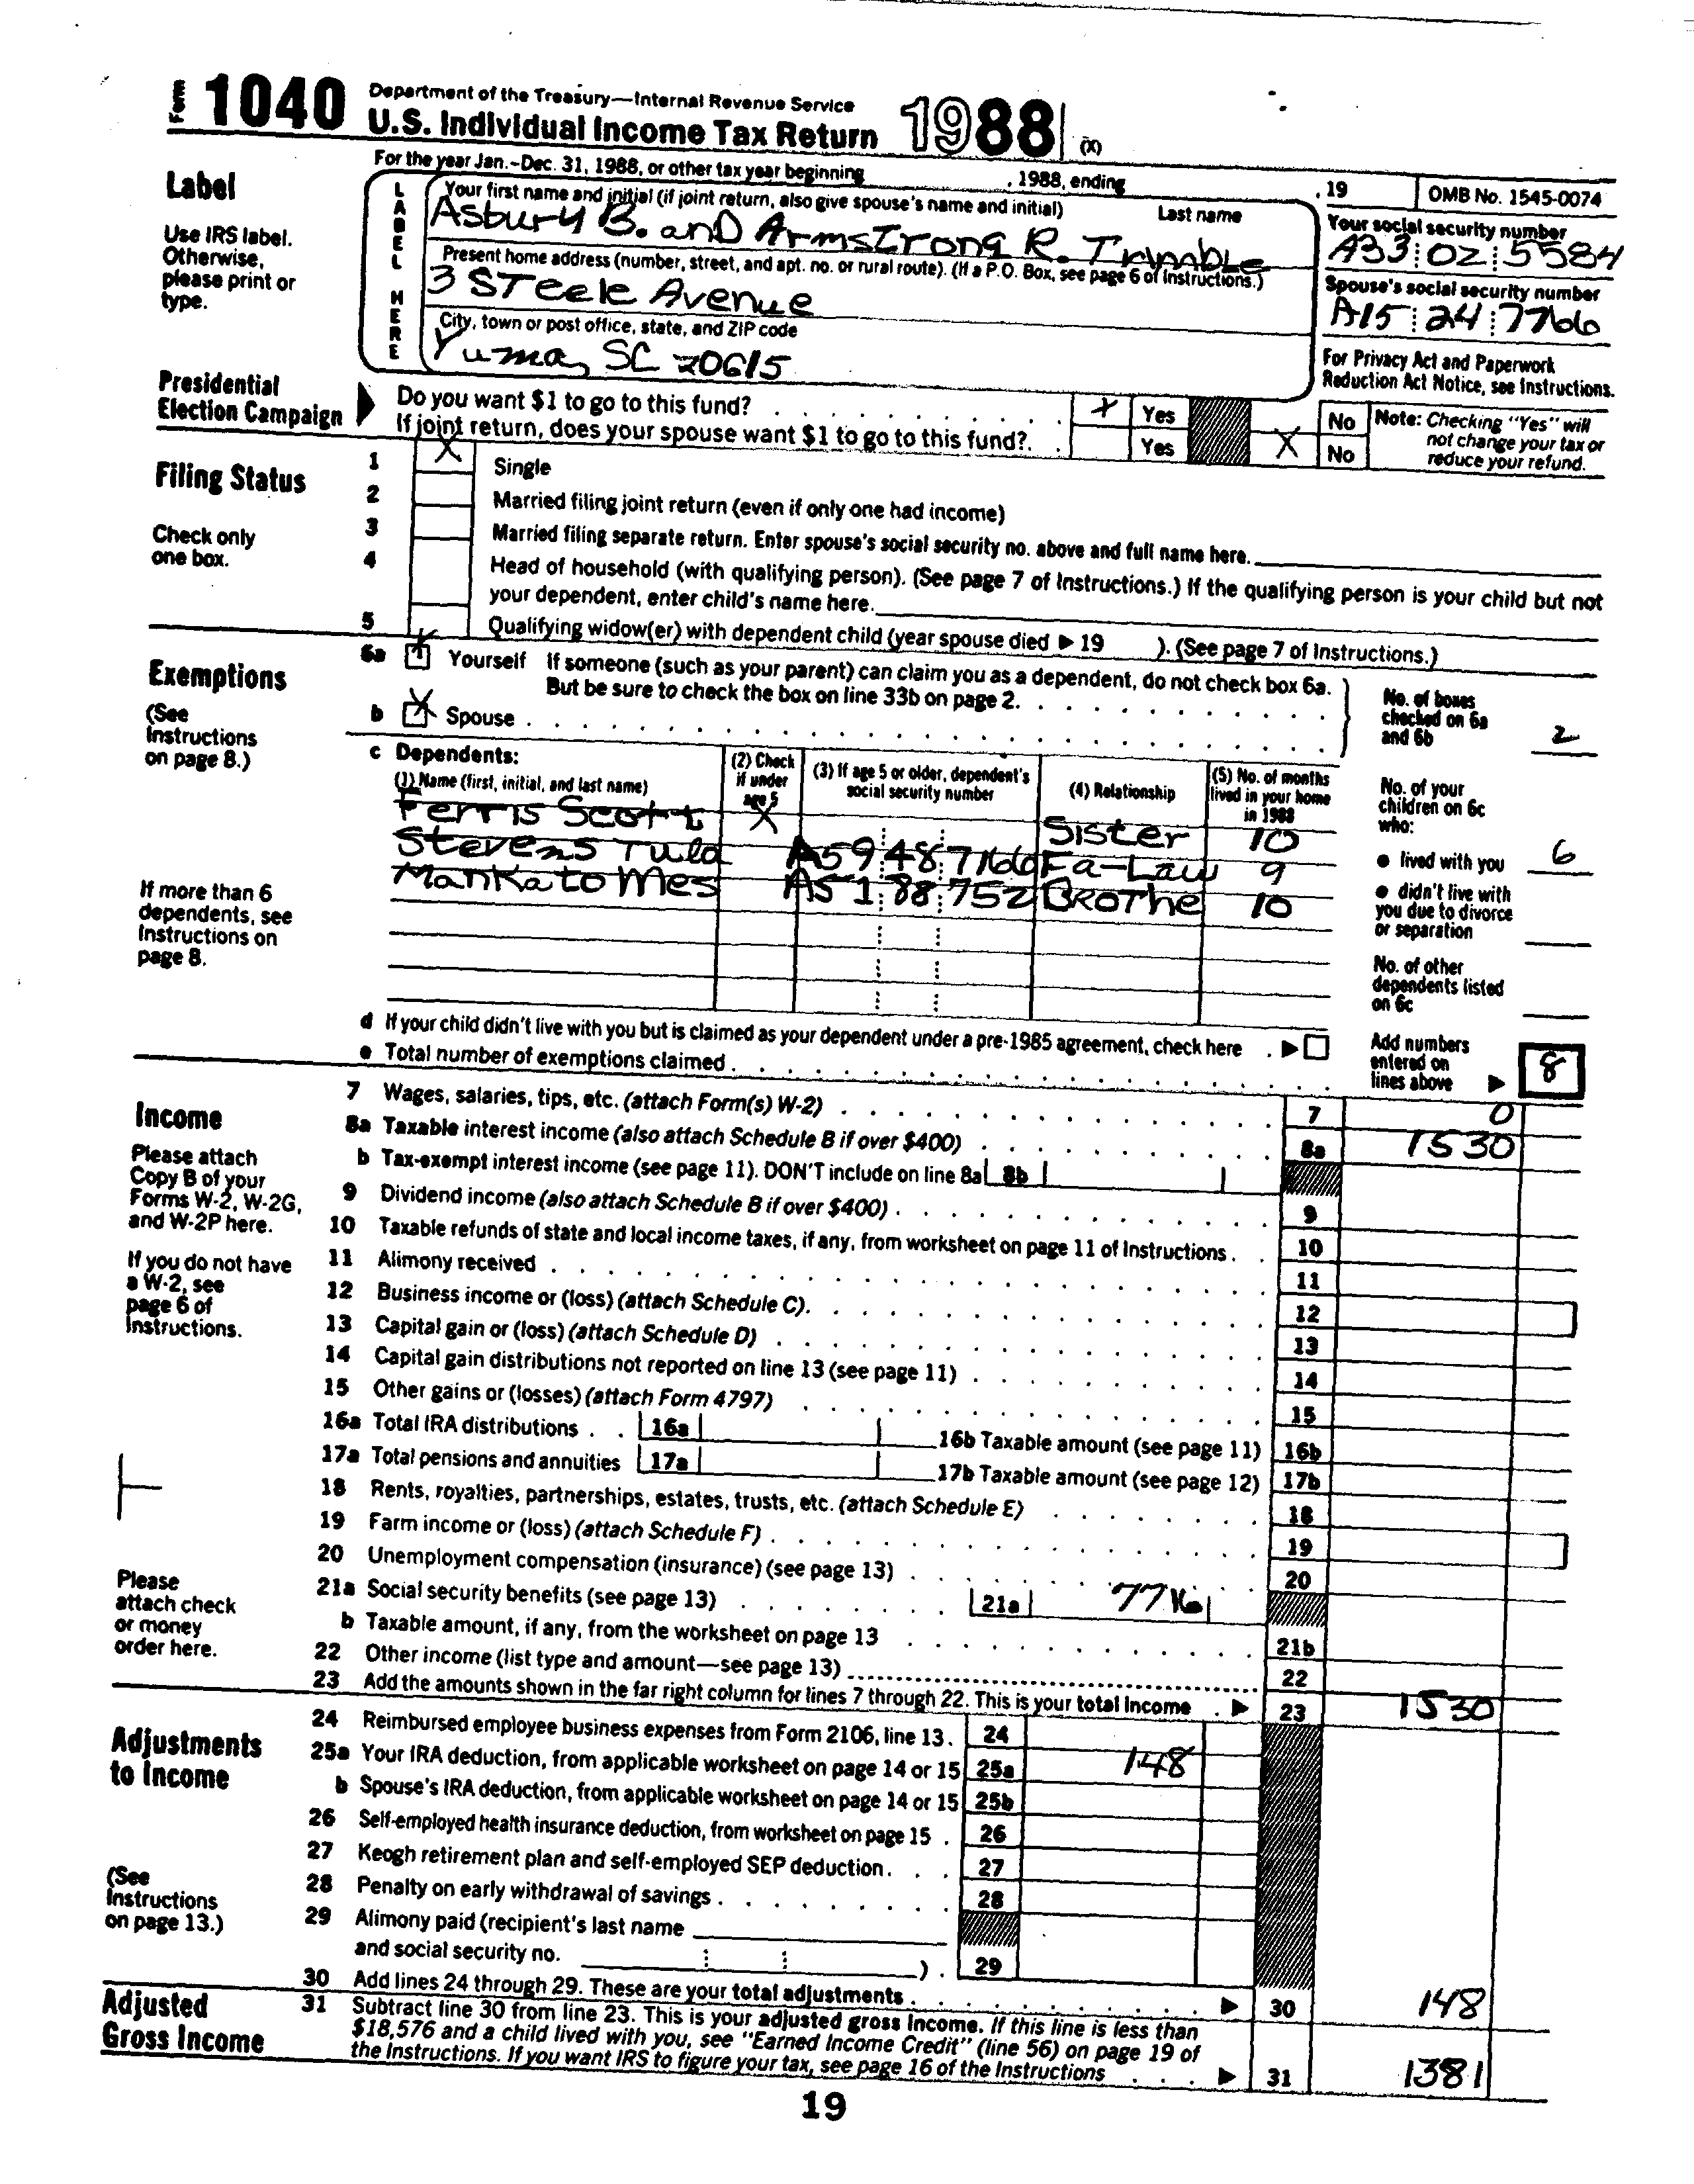 Form 1040 Department of the Treasury—Internal Revenue Service
U.S. Individual Income Tax Return 1988 (X)
For the year Jan.-Dec. 31, 1988, or other tax year beginning , 1988, ending , 19 OMB No. 1545-0074
Label
Use IRS label.
Otherwise,
please print or
type.
LABEL HERE
Your first name and initial (if joint return, also give spouse's name and initial) Last name
Asbury B. and Armstrong R. Trimble
Your social security number
A33 02 5584
Present home address (number, street, and apt. no. or rural route). (If a P.O. Box, see page 6 of Instructions.)
3 Steele Avenue
Spouse's social security number
A15 24 7766
City, town or post office, state, and ZIP code
Yuma, SC 20615
For Privacy Act and Paperwork
Reduction Act Notice, see Instructions.
Presidential
Election Campaign
Do you want $1 to go to this fund? X Yes No
If joint return, does your spouse want $1 to go to this fund? Yes X No
Note: Checking "Yes" will
not change your tax or
reduce your refund.
Filing Status
Check only
one box.
1 X Single
2 Married filing joint return (even if only one had income)
3 Married filing separate return. Enter spouse's social security no. above and full name here.
4 Head of household (with qualifying person). (See page 7 of Instructions.) If the qualifying person is your child but not
your dependent, enter child's name here.
5 Qualifying widow(er) with dependent child (year spouse died ▶ 19 ). (See page 7 of Instructions.)
Exemptions
(See
Instructions
on page 8.)
6a X Yourself If someone (such as your parent) can claim you as a dependent, do not check box 6a.
But be sure to check the box on line 33b on page 2.
b X Spouse
No. of boxes
checked on 6a
and 6b 2
c Dependents:
(1) Name (first, initial, and last name)
(2) Check
if under
age 5
(3) If age 5 or older, dependent's
social security number
(4) Relationship
(5) No. of months
lived in your home
in 1988
Ferris Scott X Sister 10
Stevens Tula A59 48 7166 Fa-Law 9
Mankato Mes A51 88 752 Brothe 10
If more than 6
dependents, see
Instructions on
page 8.
No. of your
children on 6c
who:
● lived with you 6
● didn't live with
you due to divorce
or separation
No. of other
dependents listed
on 6c
d If your child didn't live with you but is claimed as your dependent under a pre-1985 agreement, check here . ▶
e Total number of exemptions claimed
Add numbers
entered on
lines above ▶ 8
Income
Please attach
Copy B of your
Forms W-2, W-2G,
and W-2P here.
If you do not have
a W-2, see
page 6 of
Instructions.
Please
attach check
or money
order here.
7 Wages, salaries, tips, etc. (attach Form(s) W-2) 7 0
8a Taxable interest income (also attach Schedule B if over $400) 8a 1530
b Tax-exempt interest income (see page 11). DON'T include on line 8a 8b
9 Dividend income (also attach Schedule B if over $400) 9
10 Taxable refunds of state and local income taxes, if any, from worksheet on page 11 of Instructions 10
11 Alimony received 11
12 Business income or (loss) (attach Schedule C) 12
13 Capital gain or (loss) (attach Schedule D) 13
14 Capital gain distributions not reported on line 13 (see page 11) 14
15 Other gains or (losses) (attach Form 4797) 15
16a Total IRA distributions 16a 16b Taxable amount (see page 11) 16b
17a Total pensions and annuities 17a 17b Taxable amount (see page 12) 17b
18 Rents, royalties, partnerships, estates, trusts, etc. (attach Schedule E) 18
19 Farm income or (loss) (attach Schedule F) 19
20 Unemployment compensation (insurance) (see page 13) 20
21a Social security benefits (see page 13) 21a 7716
b Taxable amount, if any, from the worksheet on page 13 21b
22 Other income (list type and amount—see page 13) 22
23 Add the amounts shown in the far right column for lines 7 through 22. This is your total income ▶ 23 1530
Adjustments
to Income
(See
Instructions
on page 13.)
24 Reimbursed employee business expenses from Form 2106, line 13 24
25a Your IRA deduction, from applicable worksheet on page 14 or 15 25a 148
b Spouse's IRA deduction, from applicable worksheet on page 14 or 15 25b
26 Self-employed health insurance deduction, from worksheet on page 15 26
27 Keogh retirement plan and self-employed SEP deduction 27
28 Penalty on early withdrawal of savings 28
29 Alimony paid (recipient's last name
and social security no. ) 29
30 Add lines 24 through 29. These are your total adjustments ▶ 30 148
Adjusted
Gross Income
31 Subtract line 30 from line 23. This is your adjusted gross income. If this line is less than
$18,576 and a child lived with you, see "Earned Income Credit" (line 56) on page 19 of
the Instructions. If you want IRS to figure your tax, see page 16 of the Instructions ▶ 31 1381
19